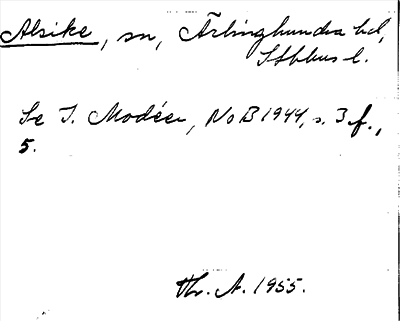 Alsike, sn, Ärlinghundra hd,
Sthlms l.
Se I. Modéer, NoB 1944, s. 3 f.,
5.
Thr. A. 1955.